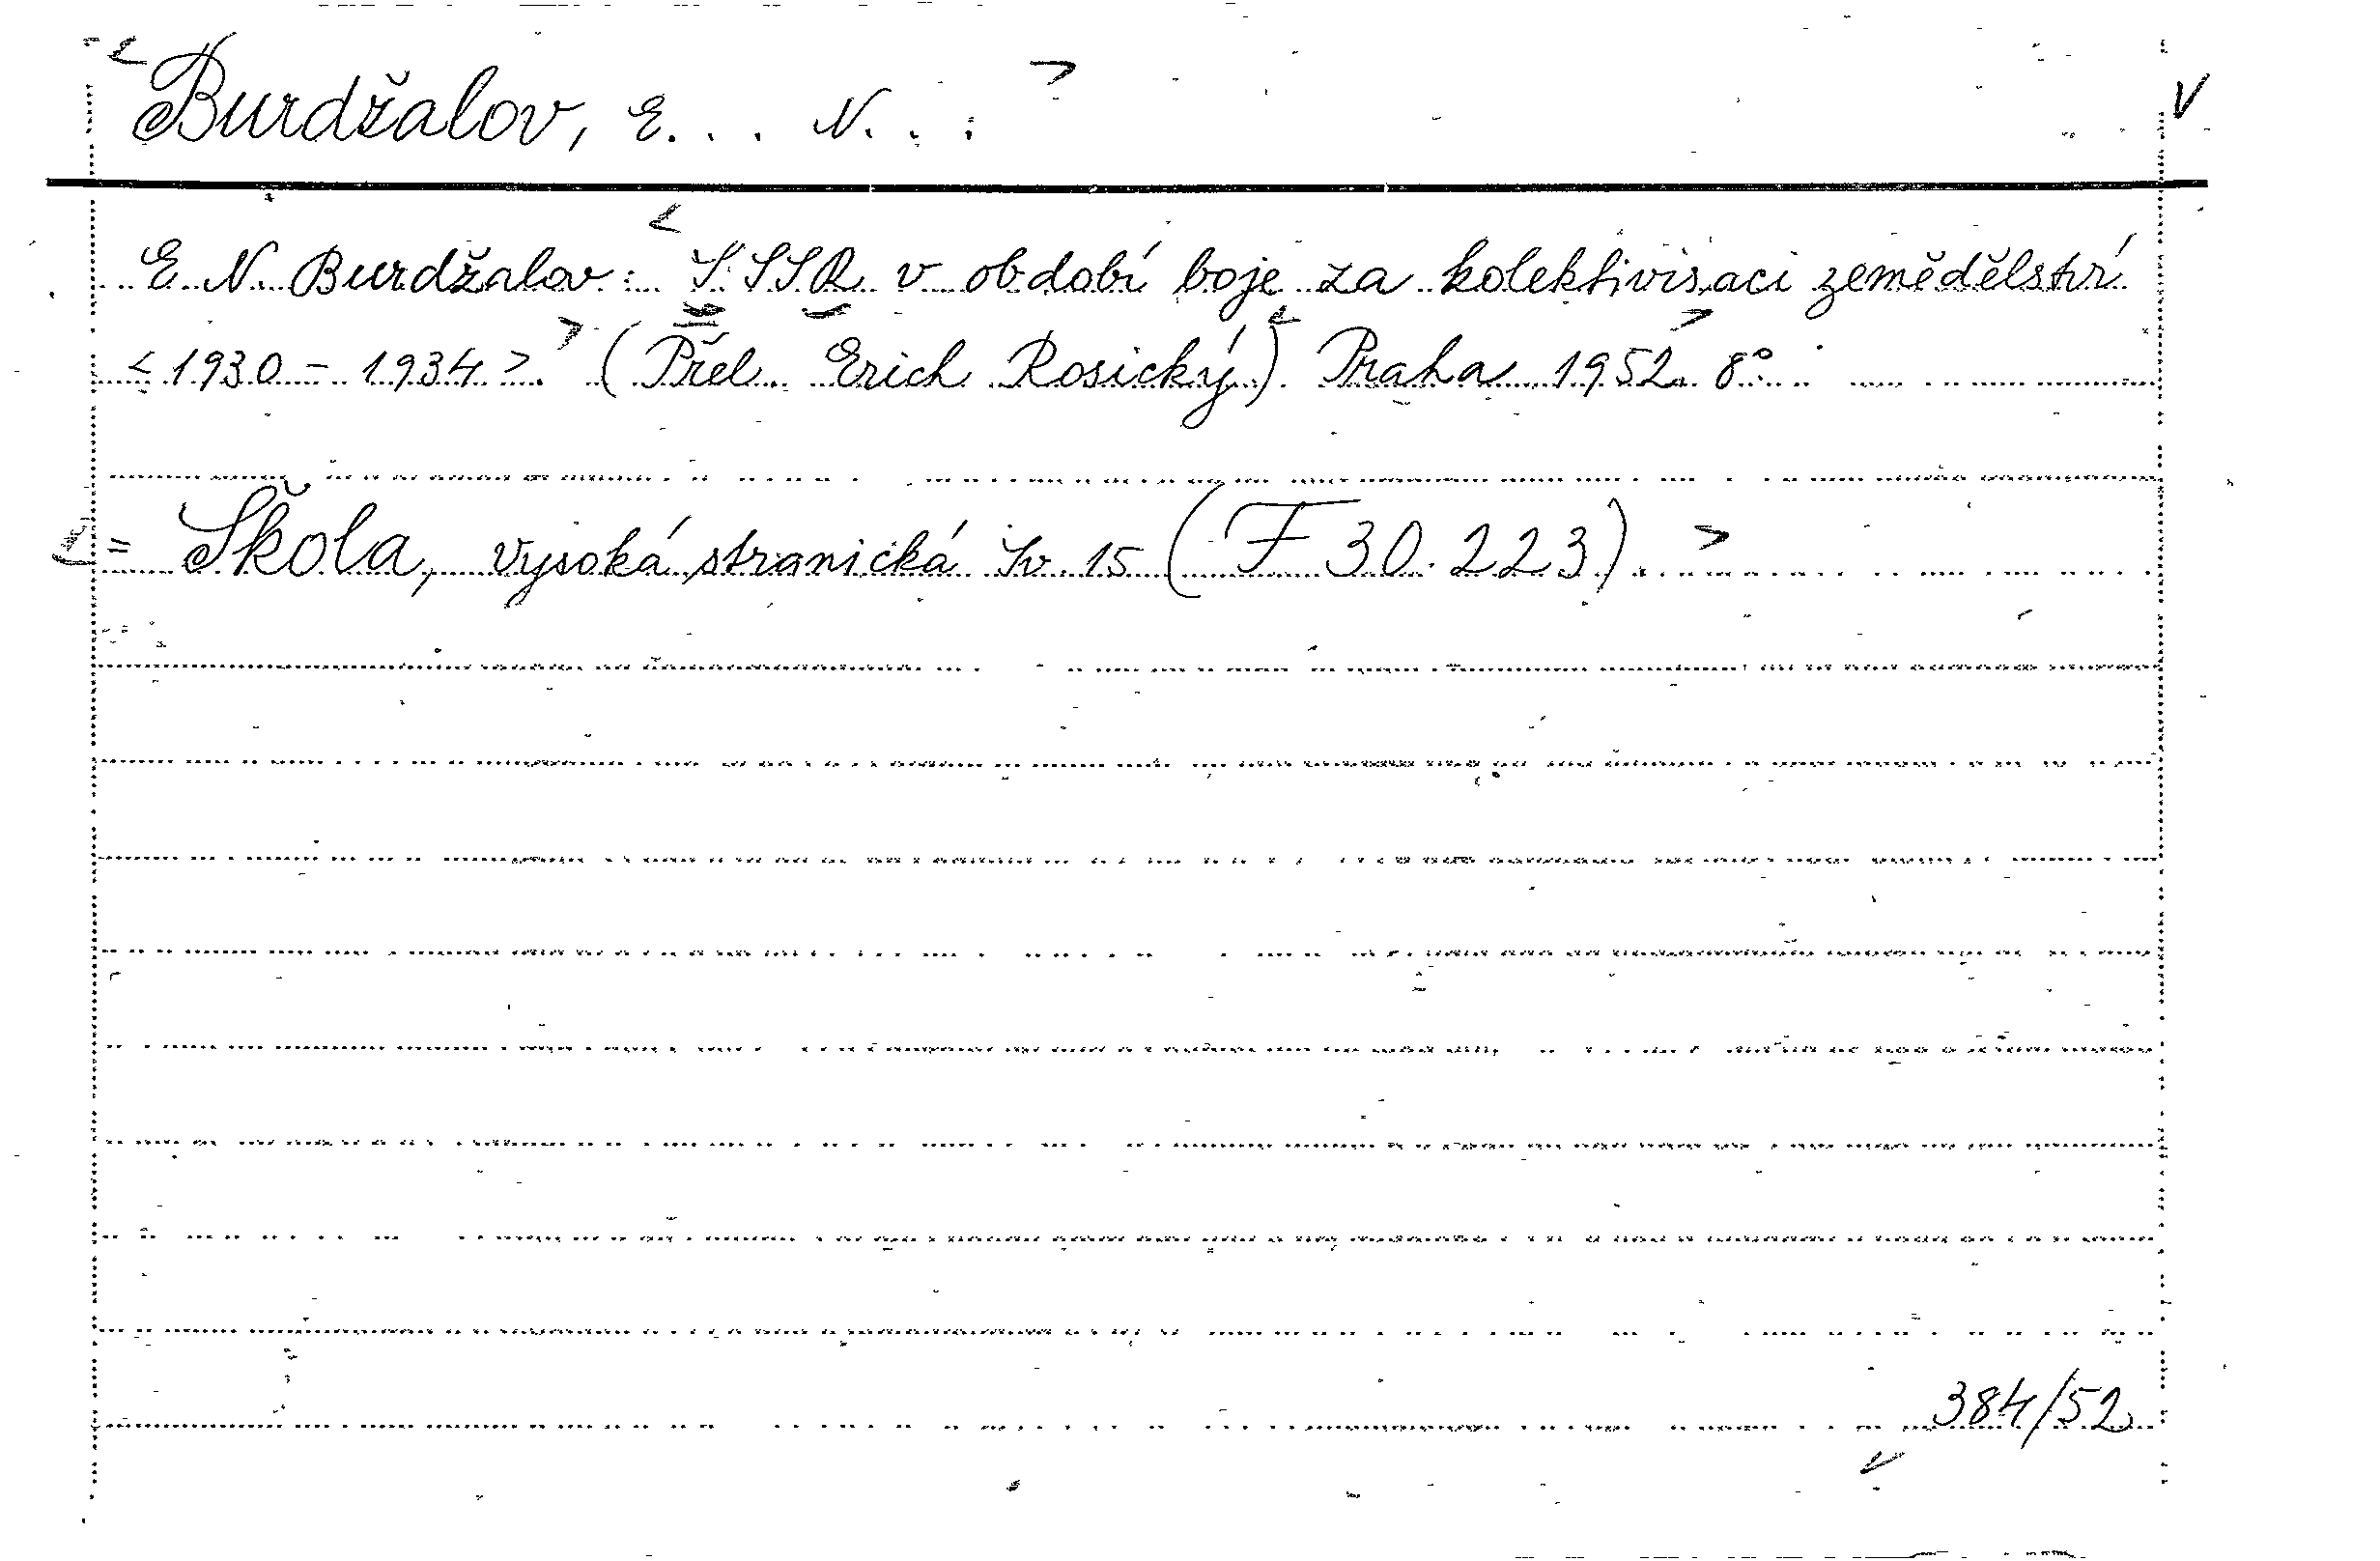 Burdžalov, E... N...:
E. N. Burdžalov: SSSR v období boje za kolektivisaci zemědělství
<1930 - 1934>. (Přel. Erich Rosický) Praha 1952. 8°.
= Škola, vysoká stranická Sv. 15 (F 30.223).
384/52